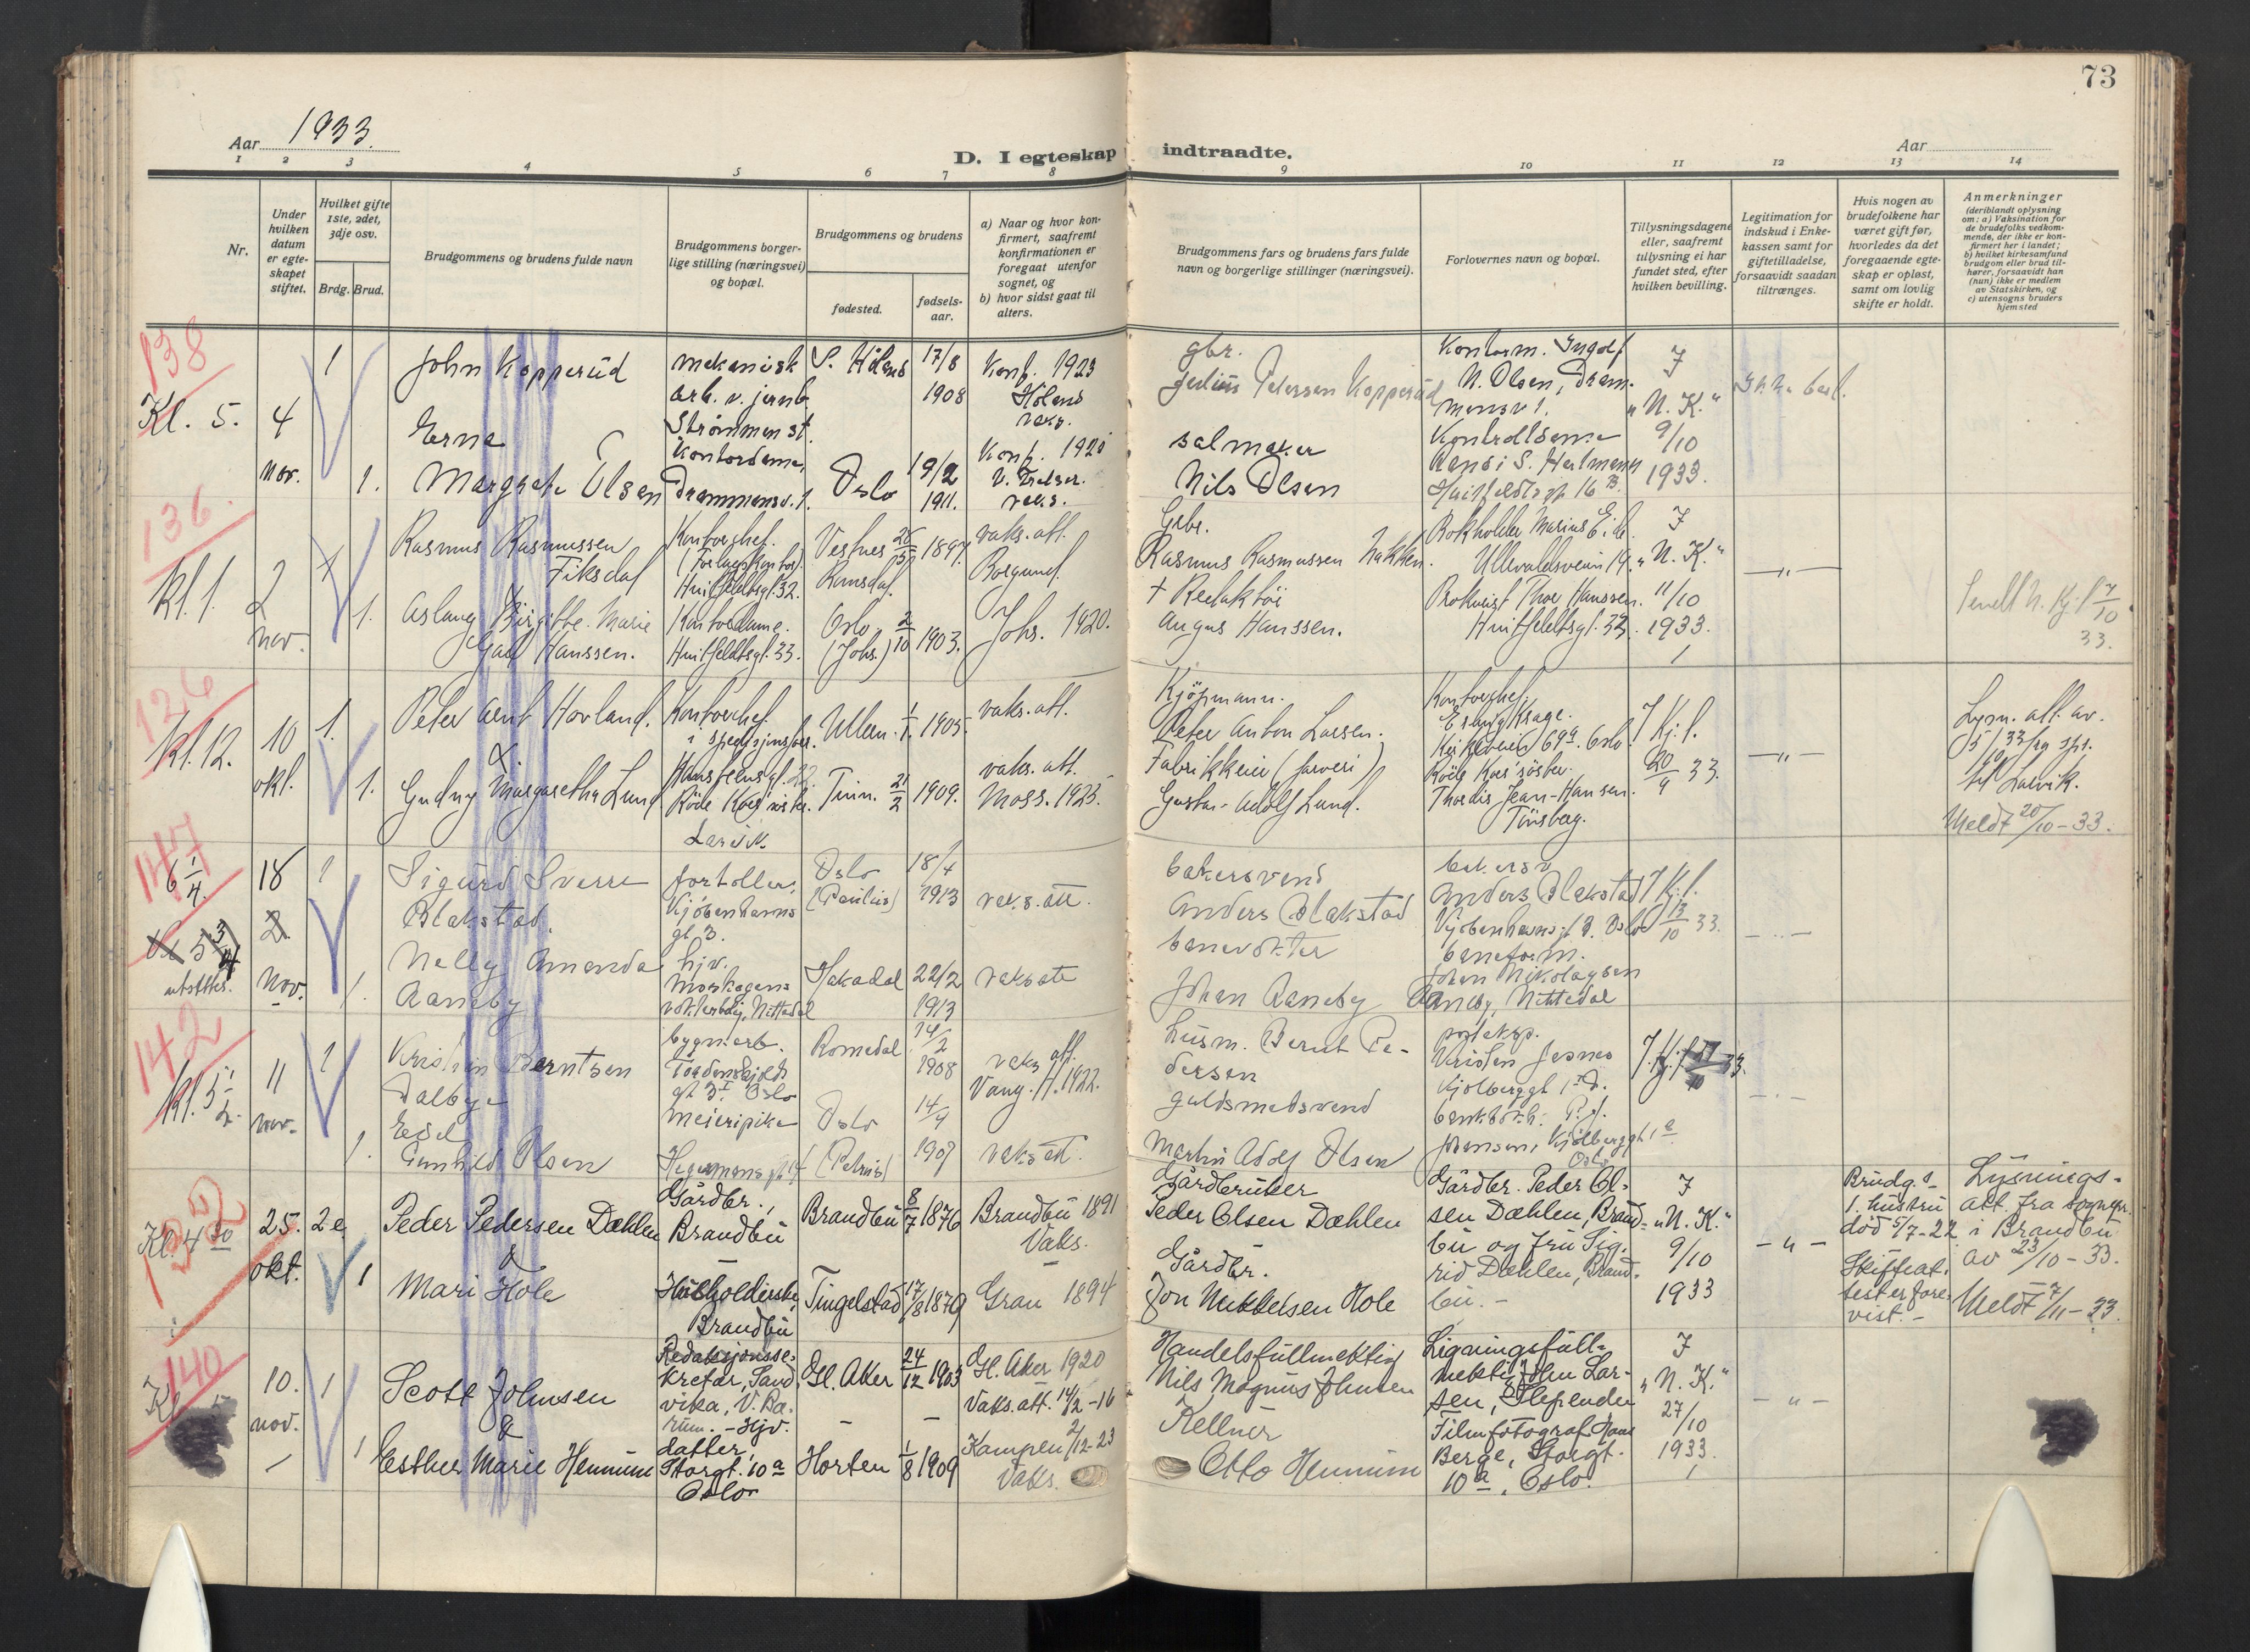 73
Aar 1933.
D. I egteskap indtraadte.
Aar
1 2 3 4 5 6 7 8 9 10 11 12 13 14
Nr.
Under
hvilken
datum
er egte-
skapet
stiftet.
Hvilket gifte
1ste, 2det,
3dje osv.
Brdg. Brud.
Brudgommens og brudens fulde navn
Brudgommens borger-
lige stilling (næringsvei)
og bopæl.
Brudgommens og brudens
fødested.
fødsels-
aar.
a) Naar og hvor kon-
firmert, saafremt
konfirmationen er
foregaat utenfor
sognet, og
b) hvor sidst gaat til
alters.
Brudgommens fars og brudens fars fulde
navn og borgerlige stillinger (næringsvei).
Forlovernes navn og bopæl.
Tillysningsdagene
eller, saafremt
tillysning ei har
fundet sted, efter
hvilken bevilling.
Legitimation for
indskud i Enke-
kassen samt for
giftetilladelse,
forsaavidt saadan
tiltrænges.
Hvis nogen av
brudefolkene har
været gift før,
hvorledes da det
foregaaende egte-
skap er opløst,
samt om lovlig
skifte er holdt.
Anmerkninger
(deriblandt oplysning
om: a) Vaksination for
de brudefolks vedkom-
mende, der ikke er kon-
firmert her i landet;
b) hvilket kirkesamfund
brudgom eller brud til-
hører, forsaavidt han
(hun) ikke er medlem
av Statskirken, og
c) utensogns bruders
hjemsted
138
Kl. 5.
4
nov.
1
John Kopperud
mekanisk
arb. v. jernb.
Strømmen st.
S. Höland
17/8
1908
Konf. 1923
Höland
vaks.
gbr.
Julius Petersen Kopperud
Kontorm. Ingolf
N. Olsen, Dram-
mensv 1.
J
"N. K."
9/10
1933.
1.
Erna
Margrete Olsen
Kontordame,
Drammensv. 1.
Oslo
19/2
1911.
Konf.
vaks.
salmaker
Nils Olsen
Kontordame
Huitfeldtsgt. 16 B.
136.
Kl. 1.
2
nov.
Rasmus Rasmussen
Fiksdal
Kontorchef.
(Forlagskontor).
Huitfeldtsgt. 32.
Vestnes
Romsdal.
1897
vaks. att.
Borgund.
Gbr.
Rasmus Rasmussen
Bokholder Marius
Ullevaalsveien 19.
J
"N. K."
11/10
1933.
1.
Aslaug Birgitte Marie
Hanssen.
Kontordame.
Huitfeldtsgt. 33.
Oslo
(Johs.)
2/10 1903.
Johs. 1920.
† Redaktör
Angus Hanssen.
Prokurist Thor Hanssen.
Huitfeldtsgt. 33.
33.
126
Kl. 12.
10
okt.
1.
Peter Arnt Hovland.
&
Kontorchef.
i spedisjonsfor.
Ullern
1/1 1905.
vaks. att.
Kjøpmann.
Peter Anton Larsen.
Kontorchef.
Erling Krage.
Kirkeveien 69a. Oslo.
7 Kj. f.
20/9 33.
Lysn. att. av.
5/10 33 fra spr.
til Larvik.
Meldt 20/10-33.
1.
Gudny Margaretha Lund
Röde Kors' söster.
Larvik.
Tinn.
1909.
vaks. att.
Moss. 1925.
Fabrikkeier (farveri)
Gustav Adolf Lund.
Röde Kors' söster.
Thordis Jean-Hansen.
Tönsberg.
147
6 1/4.
18
nov.
1
Sigurd Sverre
Blakstad.
fortoller.
Kjöbenhavns
gt. 3.
Oslo
(Paulus)
18/4
1913
vaks. att.
bakersvend
Anders Blakstad
bakersv
Anders Blakstad
Kjöbenhavnsgt 3. Oslo
7 Kj. f.
13/10 33.
1.
Nelly Amanda
Aaneby
hjv.
Nittedal
Hakadal
22/2
1913
vaks att
banevokter
Johan Aaneby
baneform.
Johan Nikolaysen
Aaneby, Nittedal
142
Kl. 5 1/2
11
nov.
1
Kristian Berntsen
Dalbye
bygn. arb.
Tordenskjolds
gt 3 I. Oslo
Romedal
14/2
1908
vaks att.
Vang. H. 1922.
husm. Bernt Pe-
dersen
posteksp.
Kristen Jesnes
1.
Edel
Gunhild Olsen
meieripike
Oslo
(Petrus)
14/4
1907
vaks att.
guldsmedsvend
Martin Adolf Olsen
Johansen,
Oslo
132
Kl. 4 30
25.
okt.
2 e.
Peder Pedersen Dæhlen
&
Gårdbr.,
Brandbu
Brandbu
8/7 1876
Brandbu 1891
Vaks.
Gårdbruker
Peder Olsen Dæhlen
Gårdbr. Peder Ol-
sen Dæhlen, Brand-
bu og fru Sig-
rid Dæhlen, Brand-
bu. -
J
"N. K."
9/10
1933
- " -
Brudg.s
1. hustru
død 5/7-22
Skifteat-
test er fore-
vist. -
Lysnings-
att. fra sognepr.
i Brandbu
av 23/10-33.
Meldt 7/11-33.
1
Mari Hole
Husholderske,
Brandbu
Tingelstad
17/8 1879
Gran 1894
Gårdbr.
Jon Mikkelsen Hole
140
Kl.
10.
nov.
1
Scott Johnsen
&
Redaksjonsse-
kretær, Sand-
vika, V. Bæ-
rum. - Hjv.
Gl. Aker
24/12 1903
Gl. Aker 1920
Vaks. att. 14/2-16
Handelsfullmektig
Nils Magnus Johnsen
Ligningsfull-
mektig John Lar-
sen, Slependen
J
"N. K."
27/10
1933.
- " -
1
Esther Marie Hennum
datter,
Storgt. 10 a
Oslo
Horten
1/8 1909
Kampen 2/12-23
Vaks.
Kellner
Otto Hennum
Filmfotograf
Berge, Storgt.
10 a, Oslo.